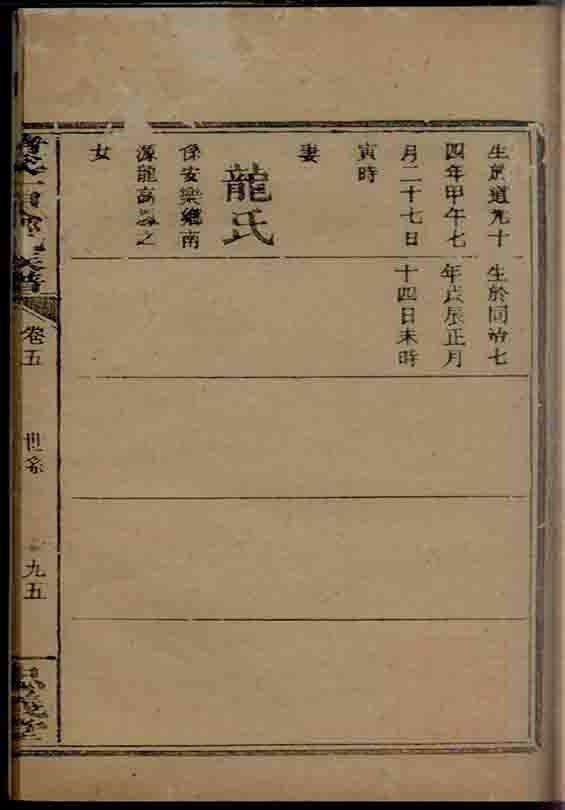 生於道光十
四年甲午七
月二十七日
寅時
妻
龍氏
係安樂鄉南
源龍高之
女
生於同治七
年戊辰正月
十四日未時
族譜
卷五
世系
九五